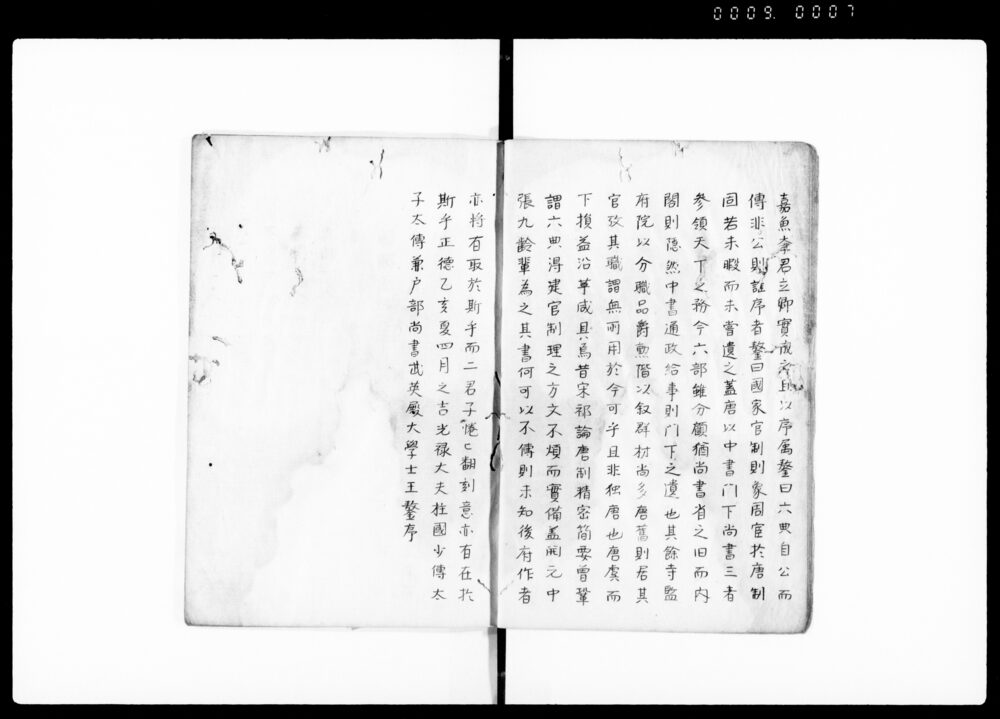 0009. 0007
嘉魚李君立卿實成之且以序属鏊曰六典自公而
傳非公則誰序者鏊曰國家官制則象周官扵唐制
固若未暇而未嘗遺之蓋唐以中書門下尚書三者
參領天下之務今六部雖分顧猶尚書省之旧而内
閣則隠然中書通政給事則门下之遺也其餘寺監
府院以分職品爵勲階以叙群材尚多唐舊則居其
官攷其職謂無所用於今可乎且非独唐也唐虞而
下損益沿革咸具焉昔宋祁論唐制精密簡要曾鞏
謂六典得建官制理之方文不煩而實備盖開元中
張九齡輩為之其書何可以不傳則未知後有作者
亦将有取於斯乎而二君子惓〻翻刻意亦有在扵
斯乎正德乙亥夏四月之吉光禄大夫柱國少傅太
子太傅兼户部尚書武英殿大學士王鏊序